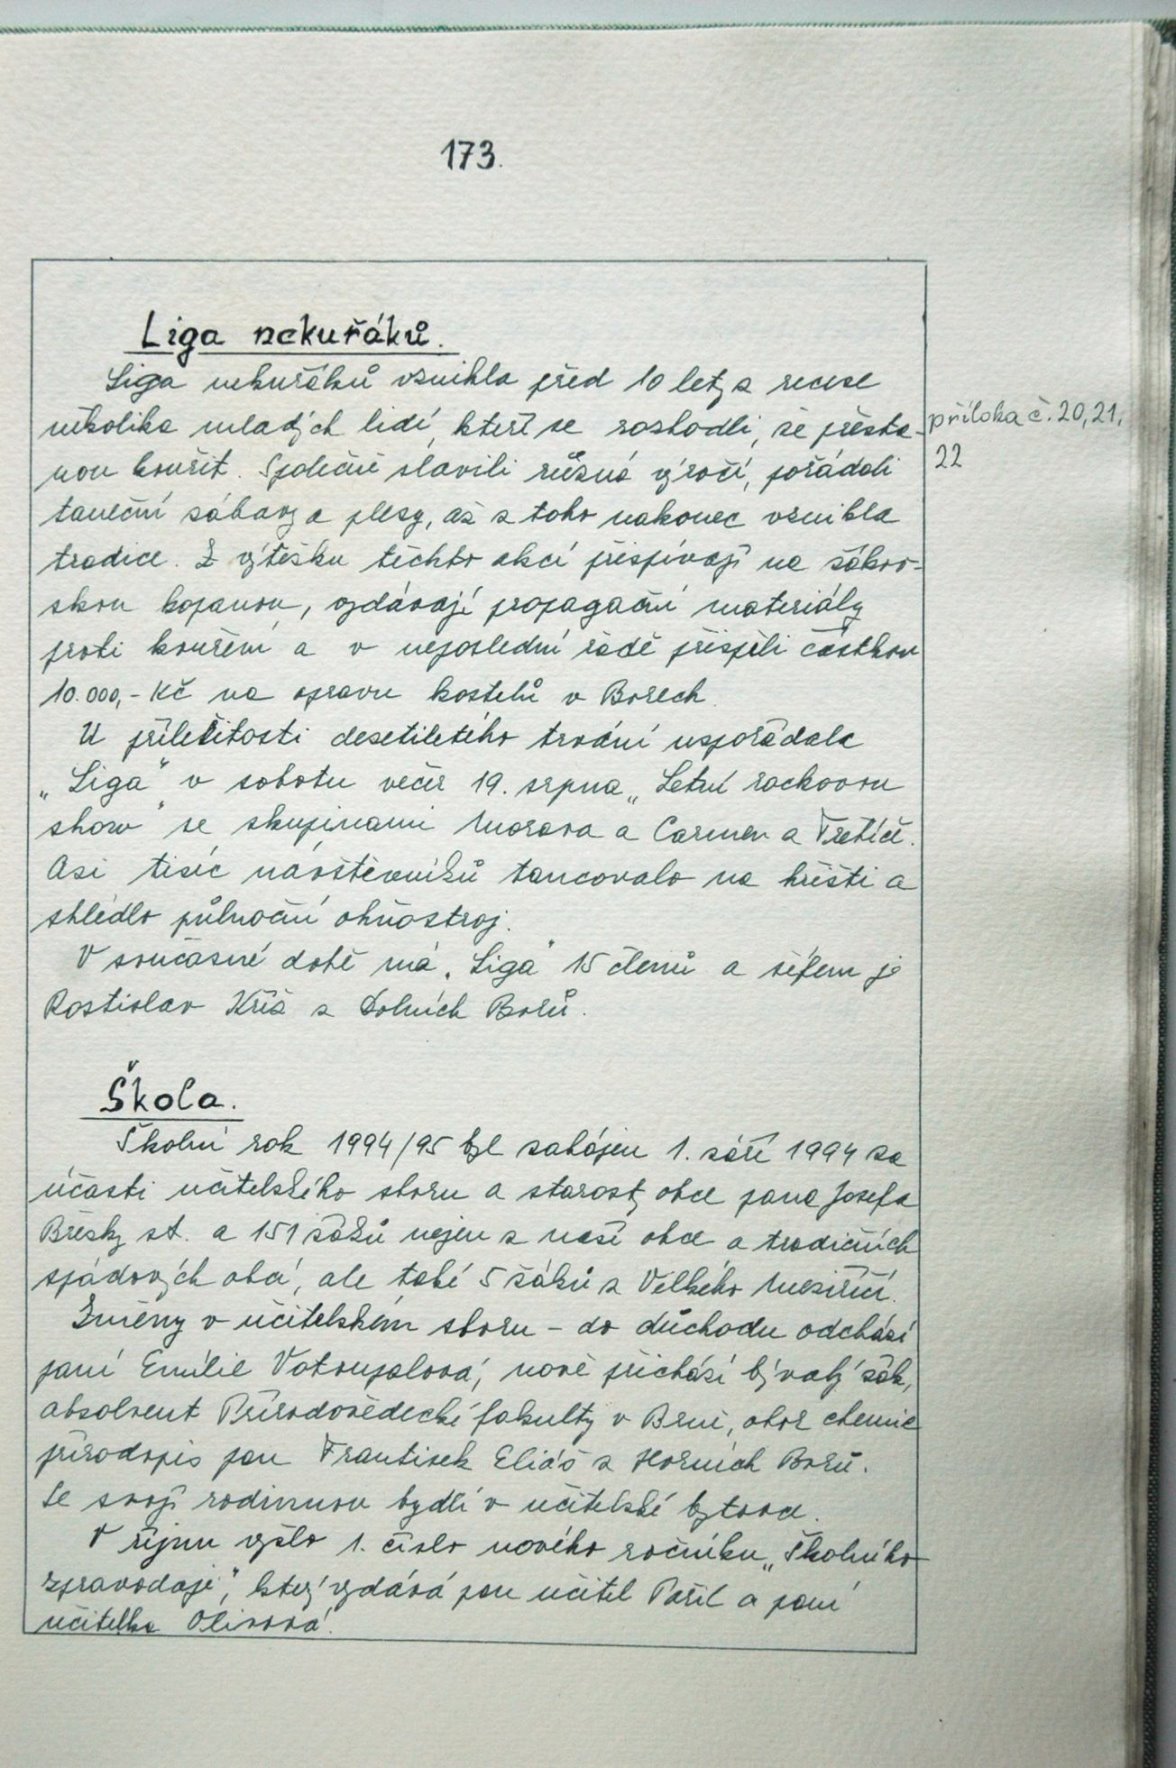 173.
Liga nekuřáků.
Liga nekuřáků vznikla před 10 lety z recese
několika mladých lidí, kteří se rozhodli, že přesta-
nou kouřit. Společně slavili různá výročí, pořádali
taneční zábavy a plesy, až z toho nakonec vznikla
tradice. Z výtěžku těchto akcí přispívají na žákov-
skou kopanou, vydávají propagační materiály
proti kouření a v neposlední řadě přispěli částkou
10.000,- Kč na opravu kostelů v Borech.
U příležitosti desetiletého trvání uspořádala
„Liga“ v sobotu večer 19. srpna „Letní rockovou
show“ se skupinami Morava a Carmen a Třetíč.
Asi tisíc návštěvníků tancovalo na hřišti a
shlédlo půlnoční ohňostroj.
V současné době má „Liga“ 15 členů a šéfem je
Rostislav Kříž z Dolních Borů.
příloha č. 20, 21,
22
Škola.
Školní rok 1994/95 byl zahájen 1. září 1994 za
účasti učitelského sboru a starosty obce pana Josefa
Březky st. a 151 žáků nejen z naší obce a tradičních
spádových obcí, ale také 5 žáků z Velkého Meziříčí.
Změny v učitelském sboru - do důchodu odchází
paní Emílie Votoupalová, nově přichází bývalý žák,
absolvent Přírodovědecké fakulty v Brně, obor chemie
přírodopis pan František Eliáš z Horních Borů.
Se svojí rodinnou bydlí v učitelské bytovce.
V říjnu vyšlo 1. číslo nového ročníku „Školního
zpravodaje“, který vydává pan učitel Pařil a paní
učitelka Olivová.